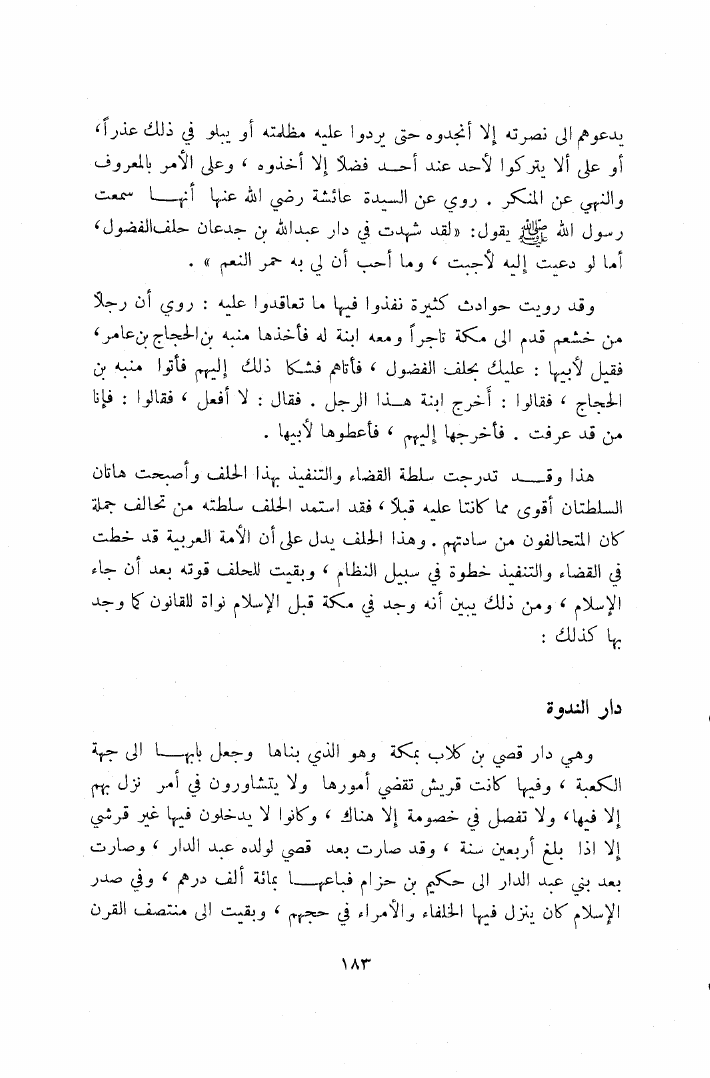 يدعوهم الى نصرته إلا أنجدوه حتى يردوا عليه مظلمته أو يبلو في ذلك عذراً،
أو على ألا يتركوا لأحد عند أحــد فضلاً إلا أخذوه ، وعلى الأمر بالمعروف
والنهي عن المنكر . روي عن السيدة عائشة رضي الله عنها أنهــا سمعت
رسول الله ﷺ يقول: «لقد شهدت في دار عبدالله بن جدعان حلف الفضول،
أما لو دعيت إليه لأجبت ، وما أحب أن لي به حمر النعم » .
وقد رويت حوادث كثيرة نفذوا فيها ما تعاقدوا عليه : روي أن رجلاً
من خشعم قدم الى مكة تاجراً ومعه ابنة له فأخذها منبه بن الحجاج بن عامر،
فقيل لأبيها : عليك بحلف الفضول ، فأتاهم فشكا ذلك إليهم فأتوا منبه بن
الحجاج ، فقالوا : أخرج ابنة هــذا الرجل . فقال : لا أفعل ، فقالوا : فإنا
من قد عرفت . فأخرجها إليهم ، فأعطوها لأبيها .
هذا وقــد تدرجت سلطة القضاء والتنفيذ بهذا الحلف وأصبحت هاتان
السلطتان أقوى مما كانتا عليه قبلاً ، فقد استمد الحلف سلطته من تحالف جملة
كان المتحالفون من سادتهم . وهذا الحلف يدل على أن الأمة العربية قد خطت
في القضاء والتنفيذ خطوة في سبيل النظام ، وبقيت للحلف قوته بعد أن جاء
الإسلام ، ومن ذلك يبين أنه وجد في مكة قبل الإسلام نواة للقانون كما وجد
بها كذلك :
دار الندوة
وهي دار قصي بن كلاب بمكة وهو الذي بناها وجعل بابهــا الى جهة
الكعبة ، وفيها كانت قريش تقضي أمورها ولا يتشاورون في أمر نزل بهم
إلا فيها، ولا تفصل في خصومة إلا هناك ، وكانوا لا يدخلون فيها غير قرشي
إلا اذا بلغ أربعين سنة ، وقد صارت بعد قصي لولده عبد الدار ، وصارت
بعد بني عبد الدار الى حكيم بن حزام فباعهــا بمائة ألف درهم ، وفي صدر
الإسلام كان ينزل فيها الخلفاء والأمراء في حجهم ، وبقيت الى منتصف القرن
١٨٣